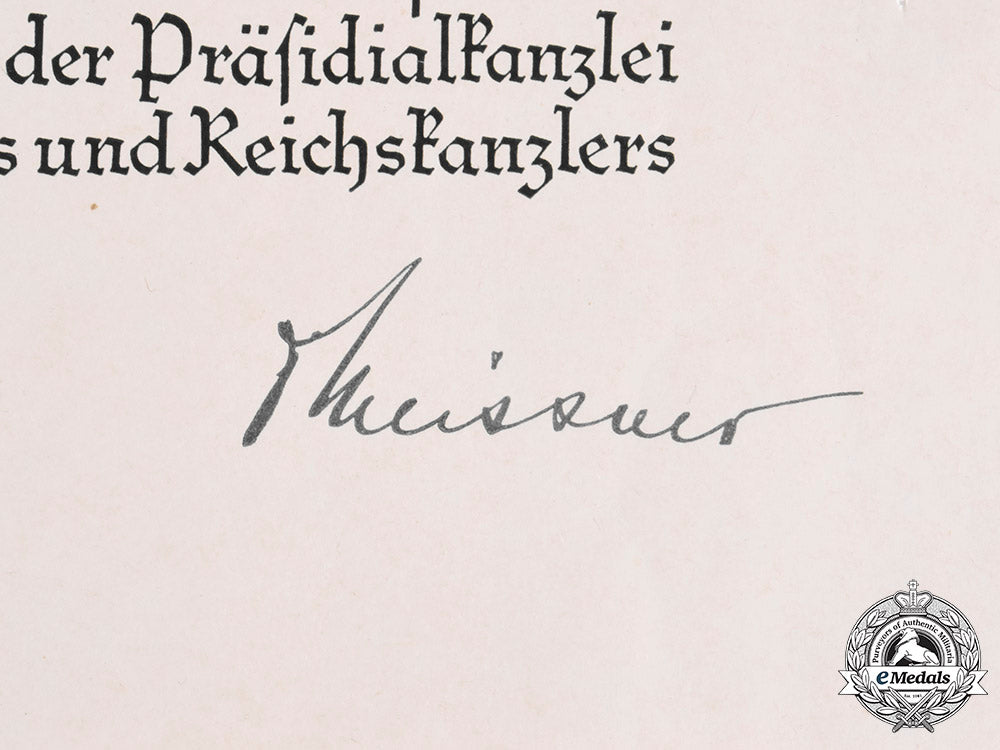 der Präſidialkanzlei
s und Reichskanzlers
Meissner
Purveyors of Authentic Militaria
eMedals